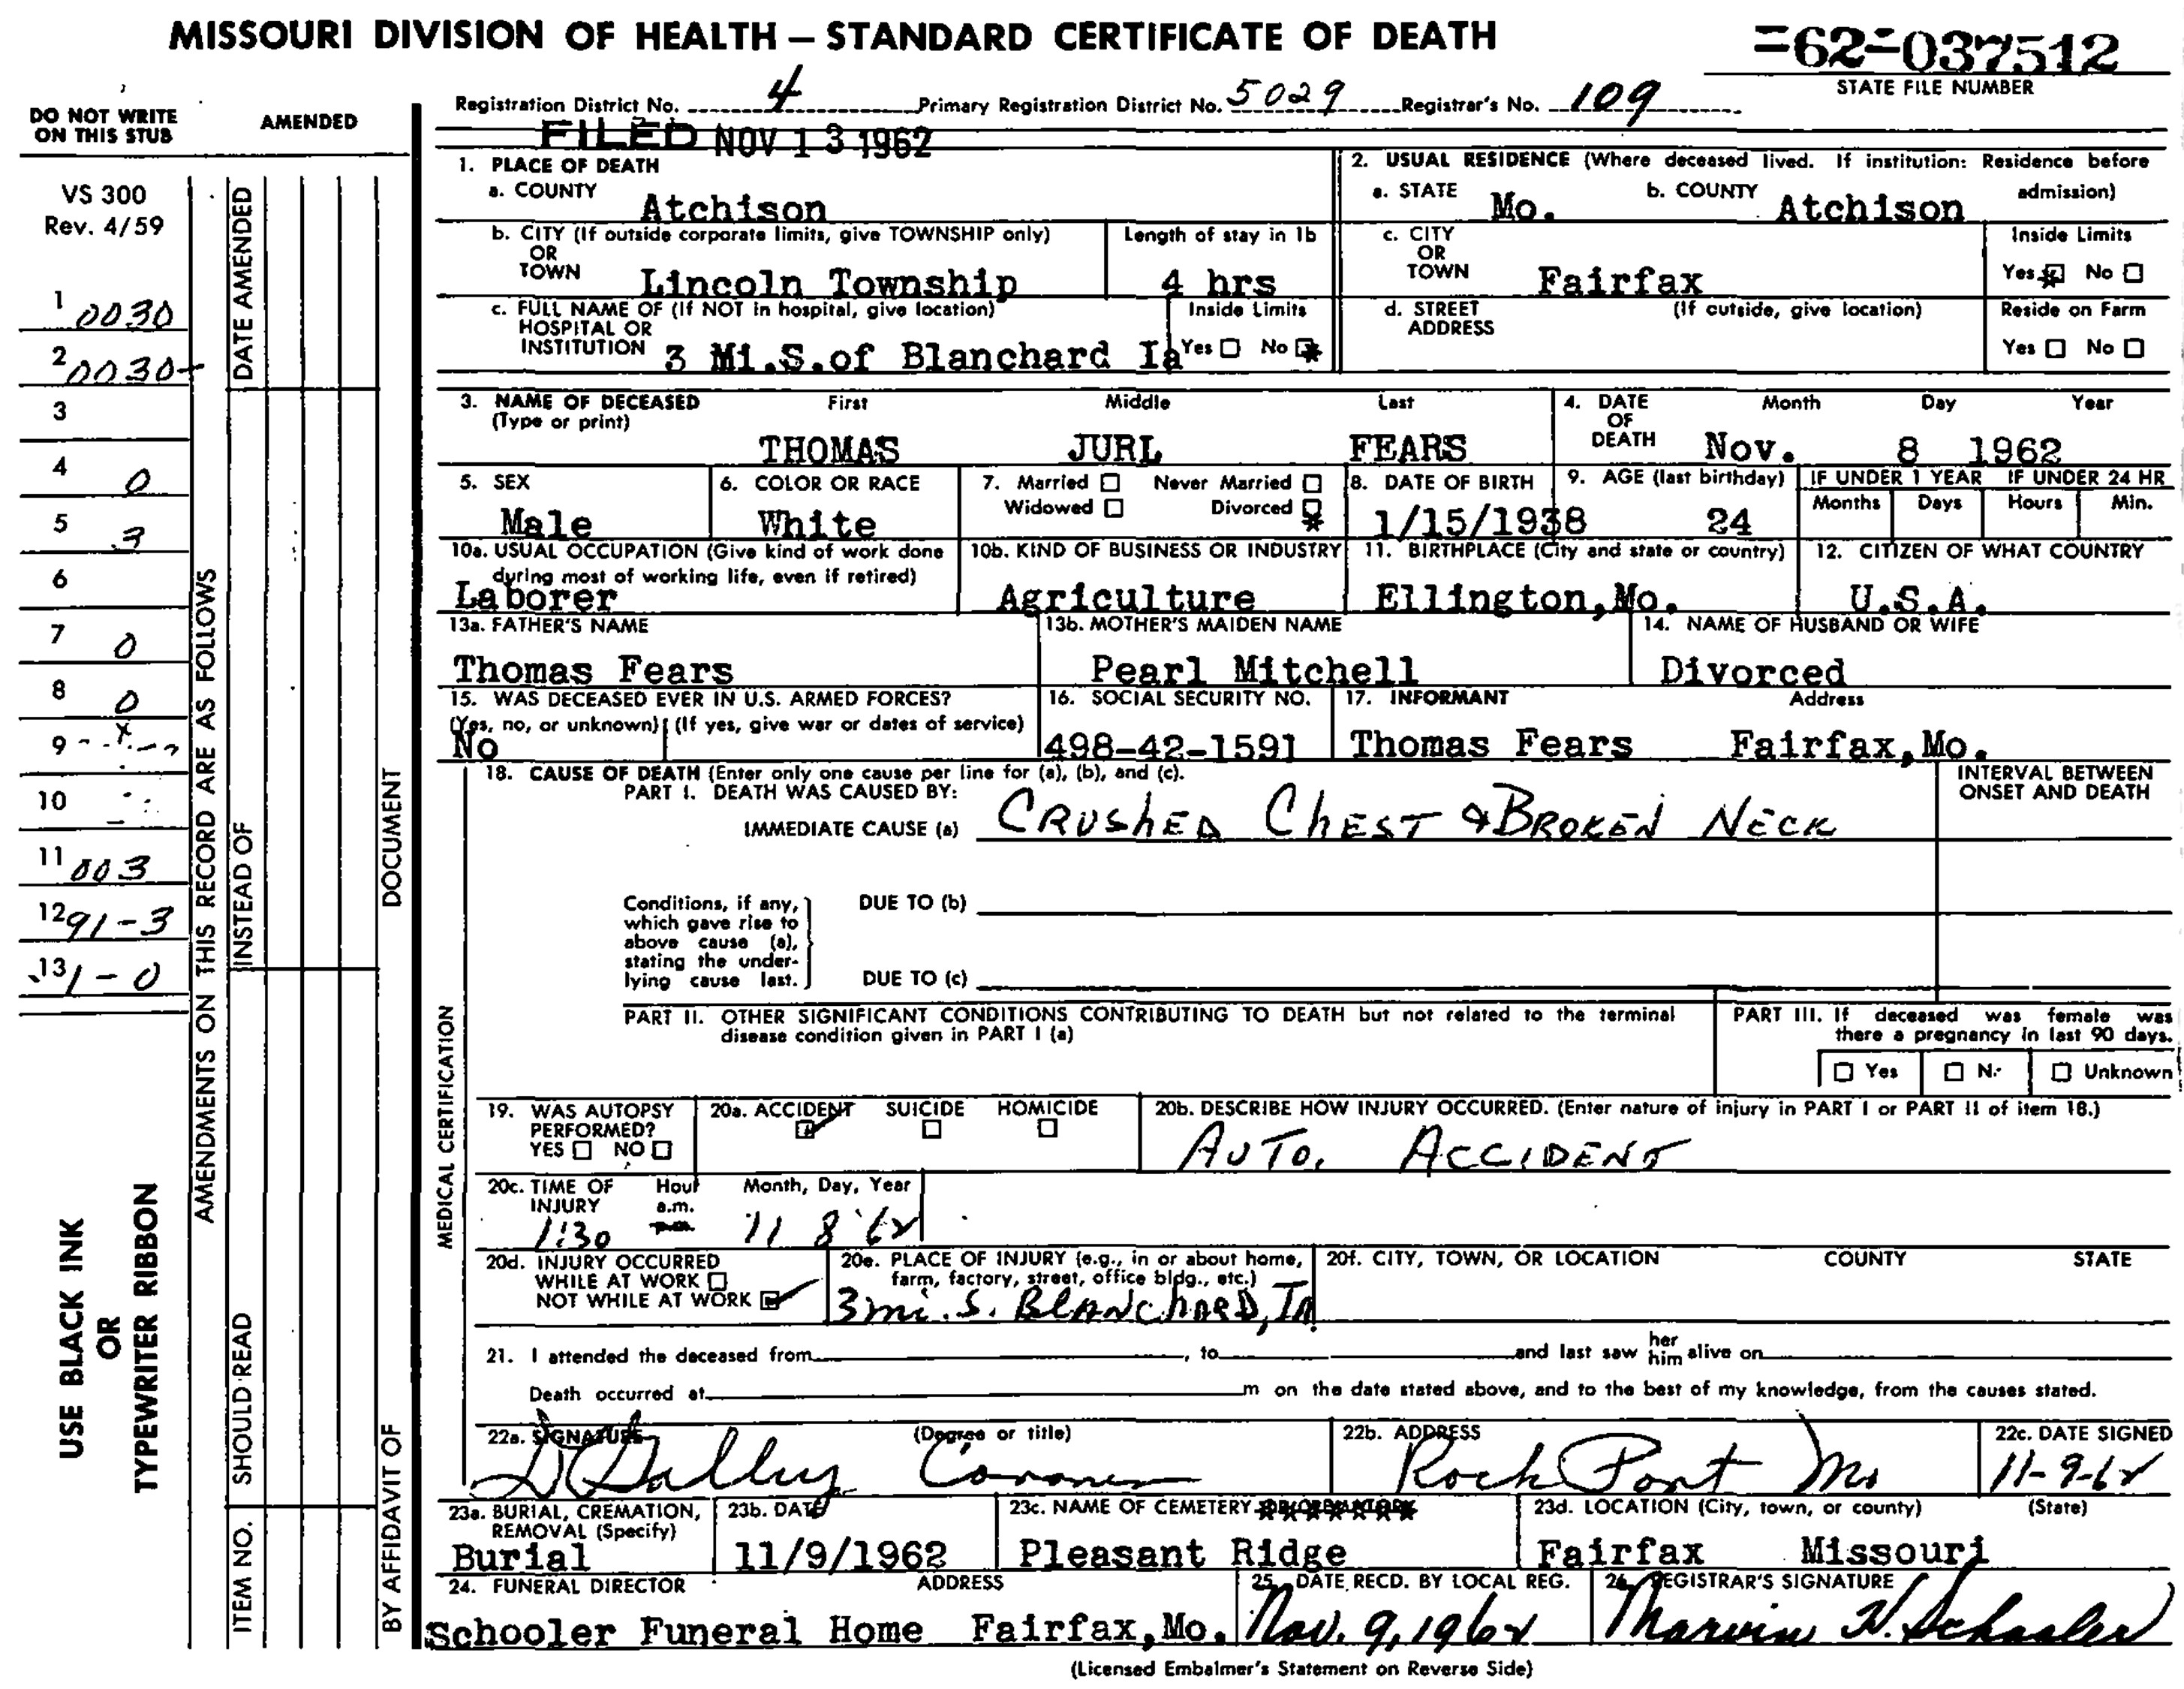 MISSOURI DIVISION OF HEALTH — STANDARD CERTIFICATE OF DEATH
=62=037512
STATE FILE NUMBER
Registration District No. 4 Primary Registration District No. 5029 Registrar's No. 109
FILED NOV 13 1962
DO NOT WRITE ON THIS STUB
AMENDED
VS 300
Rev. 4/59
1 0030
2 0030
3
4 0
5 3
6
7 0
8 0
9
10
11 003
12 91-3
13 1-0
USE BLACK INK
OR
TYPEWRITER RIBBON
AMENDMENTS ON THIS RECORD ARE AS FOLLOWS
DATE AMENDED
INSTEAD OF
SHOULD READ
ITEM NO.
DOCUMENT
BY AFFIDAVIT OF
1. PLACE OF DEATH
a. COUNTY Atchison
b. CITY (If outside corporate limits, give TOWNSHIP only) OR TOWN Lincoln Township
Length of stay in 1b 4 hrs
c. FULL NAME OF (If NOT in hospital, give location) HOSPITAL OR INSTITUTION 3 Mi.S.of Blanchard Ia
Inside Limits Yes No *
2. USUAL RESIDENCE (Where deceased lived. If institution: Residence before admission)
a. STATE Mo. b. COUNTY Atchison
c. CITY OR TOWN Fairfax
Inside Limits Yes * No
d. STREET ADDRESS (If outside, give location)
Reside on Farm Yes No
3. NAME OF DECEASED (Type or print) First Middle Last
THOMAS JURL FEARS
4. DATE OF DEATH Month Day Year
Nov. 8 1962
5. SEX Male
6. COLOR OR RACE White
7. Married Never Married Widowed Divorced *
8. DATE OF BIRTH 1/15/1938
9. AGE (last birthday) 24
IF UNDER 1 YEAR Months Days
IF UNDER 24 HR Hours Min.
10a. USUAL OCCUPATION (Give kind of work done during most of working life, even if retired) Laborer
10b. KIND OF BUSINESS OR INDUSTRY Agriculture
11. BIRTHPLACE (City and state or country) Ellington,Mo.
12. CITIZEN OF WHAT COUNTRY U.S.A.
13a. FATHER'S NAME Thomas Fears
13b. MOTHER'S MAIDEN NAME Pearl Mitchell
14. NAME OF HUSBAND OR WIFE Divorced
15. WAS DECEASED EVER IN U.S. ARMED FORCES? (Yes, no, or unknown) (If yes, give war or dates of service) No
16. SOCIAL SECURITY NO. 498-42-1591
17. INFORMANT Address
Thomas Fears Fairfax,Mo.
MEDICAL CERTIFICATION
18. CAUSE OF DEATH (Enter only one cause per line for (a), (b), and (c).
PART I. DEATH WAS CAUSED BY:
IMMEDIATE CAUSE (a) CRUSHED CHEST & BROKEN NECK
INTERVAL BETWEEN ONSET AND DEATH
Conditions, if any, which gave rise to above cause (a), stating the underlying cause last.
DUE TO (b)
DUE TO (c)
PART II. OTHER SIGNIFICANT CONDITIONS CONTRIBUTING TO DEATH but not related to the terminal disease condition given in PART I (a)
PART III. If deceased was female was there a pregnancy in last 90 days.
Yes N. Unknown
19. WAS AUTOPSY PERFORMED? YES NO
20a. ACCIDENT SUICIDE HOMICIDE
20b. DESCRIBE HOW INJURY OCCURRED. (Enter nature of injury in PART I or PART II of item 18.)
AUTO. ACCIDENT
20c. TIME OF INJURY Hour a.m. p.m. Month, Day, Year
1:30 11 8 '62
20d. INJURY OCCURRED
WHILE AT WORK
NOT WHILE AT WORK
20e. PLACE OF INJURY (e.g., in or about home, farm, factory, street, office bldg., etc.)
3 mi. S. BLANCHARD, IA
20f. CITY, TOWN, OR LOCATION COUNTY STATE
21. I attended the deceased from , to and last saw her him alive on
Death occurred at m on the date stated above, and to the best of my knowledge, from the causes stated.
22a. SIGNATURE (Degree or title)
Coroner
22b. ADDRESS Rock Port Mo
22c. DATE SIGNED 11-9-62
23a. BURIAL, CREMATION, REMOVAL (Specify) Burial
23b. DATE 11/9/1962
23c. NAME OF CEMETERY Pleasant Ridge
23d. LOCATION (City, town, or county) (State)
Fairfax Missouri
24. FUNERAL DIRECTOR ADDRESS
Schooler Funeral Home Fairfax,Mo.
25. DATE RECD. BY LOCAL REG. Nov. 9, 1962
26. REGISTRAR'S SIGNATURE Marvin N. Schooler
(Licensed Embalmer's Statement on Reverse Side)